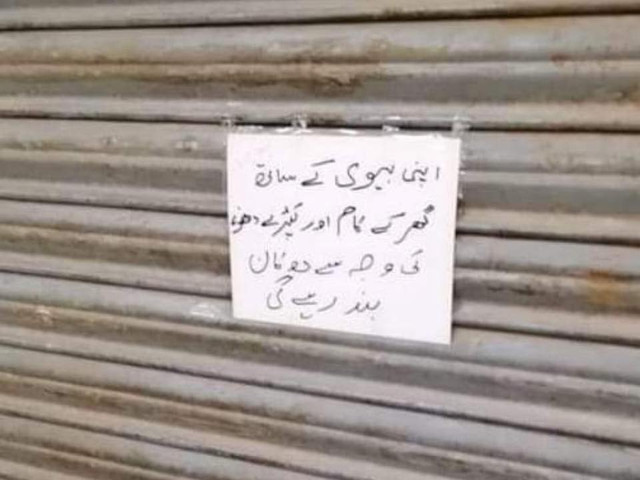 اپنی بیوی کے ساتھ
گھر کے کام اور کپڑے دھونے
کی وجہ سے دوکان
بند رہے گی